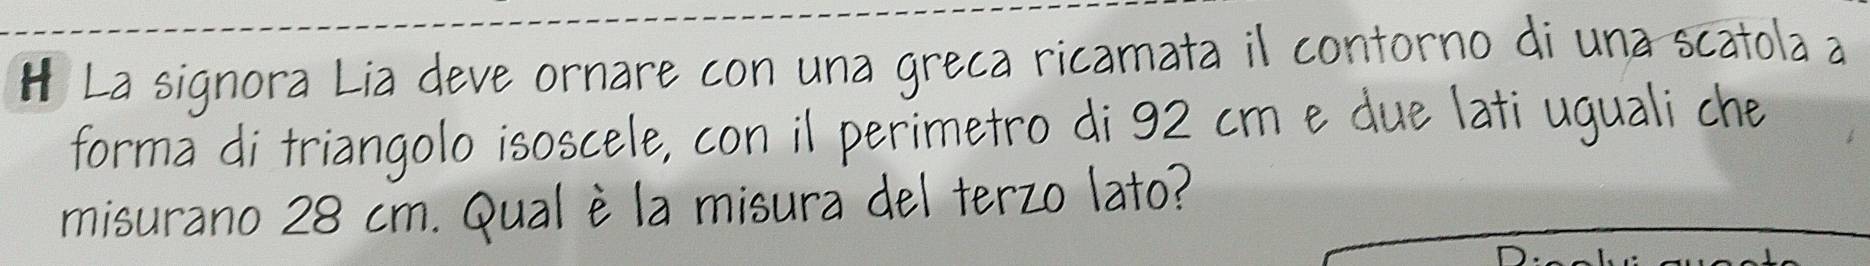 H La signora Lia deve ornare con una greca ricamata il contorno di una scatola a
forma di triangolo isoscele, con il perimetro di 92 cm e due lati uguali che
misurano 28 cm. Qual è la misura del terzo lato?